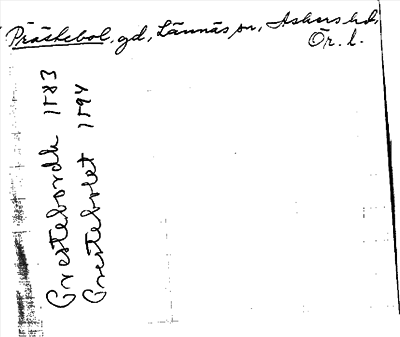 Prästebol, gd, Lännäs sn, Askers hd,
Ör. l.
Prestebordh 1583
Prestebolet 1594